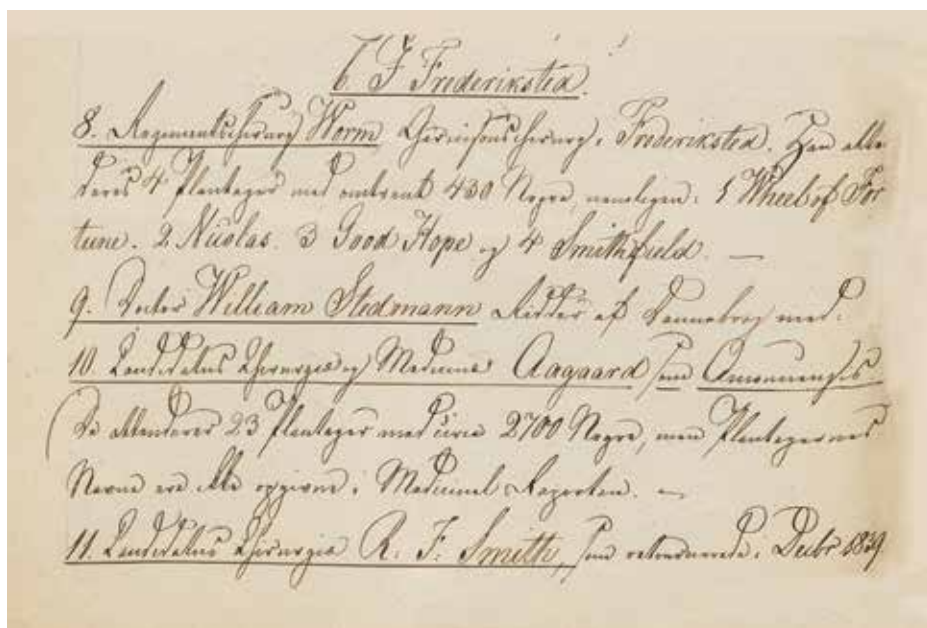 6 I Frederiksted.
8. Regimentschirurg Worm Garnisonschirurg i Frederiksted. Han atten
derer 4 Plantager med omtrent 430 Negre, nemligen: 1 Wheel of For
tune. 2 Nicolas. 3 Good Hope og 4 Smithfield. —
9. Doctor William Stedmann Ridder af Dannebrog med.
10. Candidatus Chirurgiæ og Medicinæ Aagaard som
De attenderer 23 Plantager med circa 2700 Negre, men Plantagernes
Navne ere ikke opgivne i Medicinal Raporten. —
11. Candidatus Chirurgiæ R. F. Smith, som retournerede i Decbr 1839.